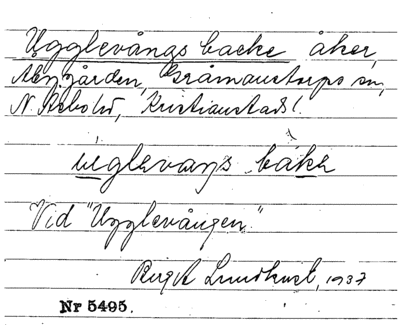 Ugglevångs backe åker,
Nygården, Gråmanstorps sn,
N. Åsbo hd, Kristianstads l.
uglevaŋs bakə
Vid "Ugglevången"
Birgit Lundkvist, 1937
Nr 5495.